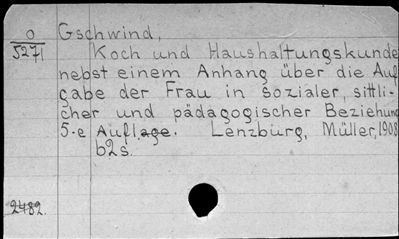 O Gschwind,
5271 Koch und Haushaltungskunde
nebst einem Anhang über die Auf
gabe der Frau in sozialer, sittli-
cher und pädagogischer Beziehung
5.e Auflage. Lenzburg, Müller, 1908
62s.
2482.